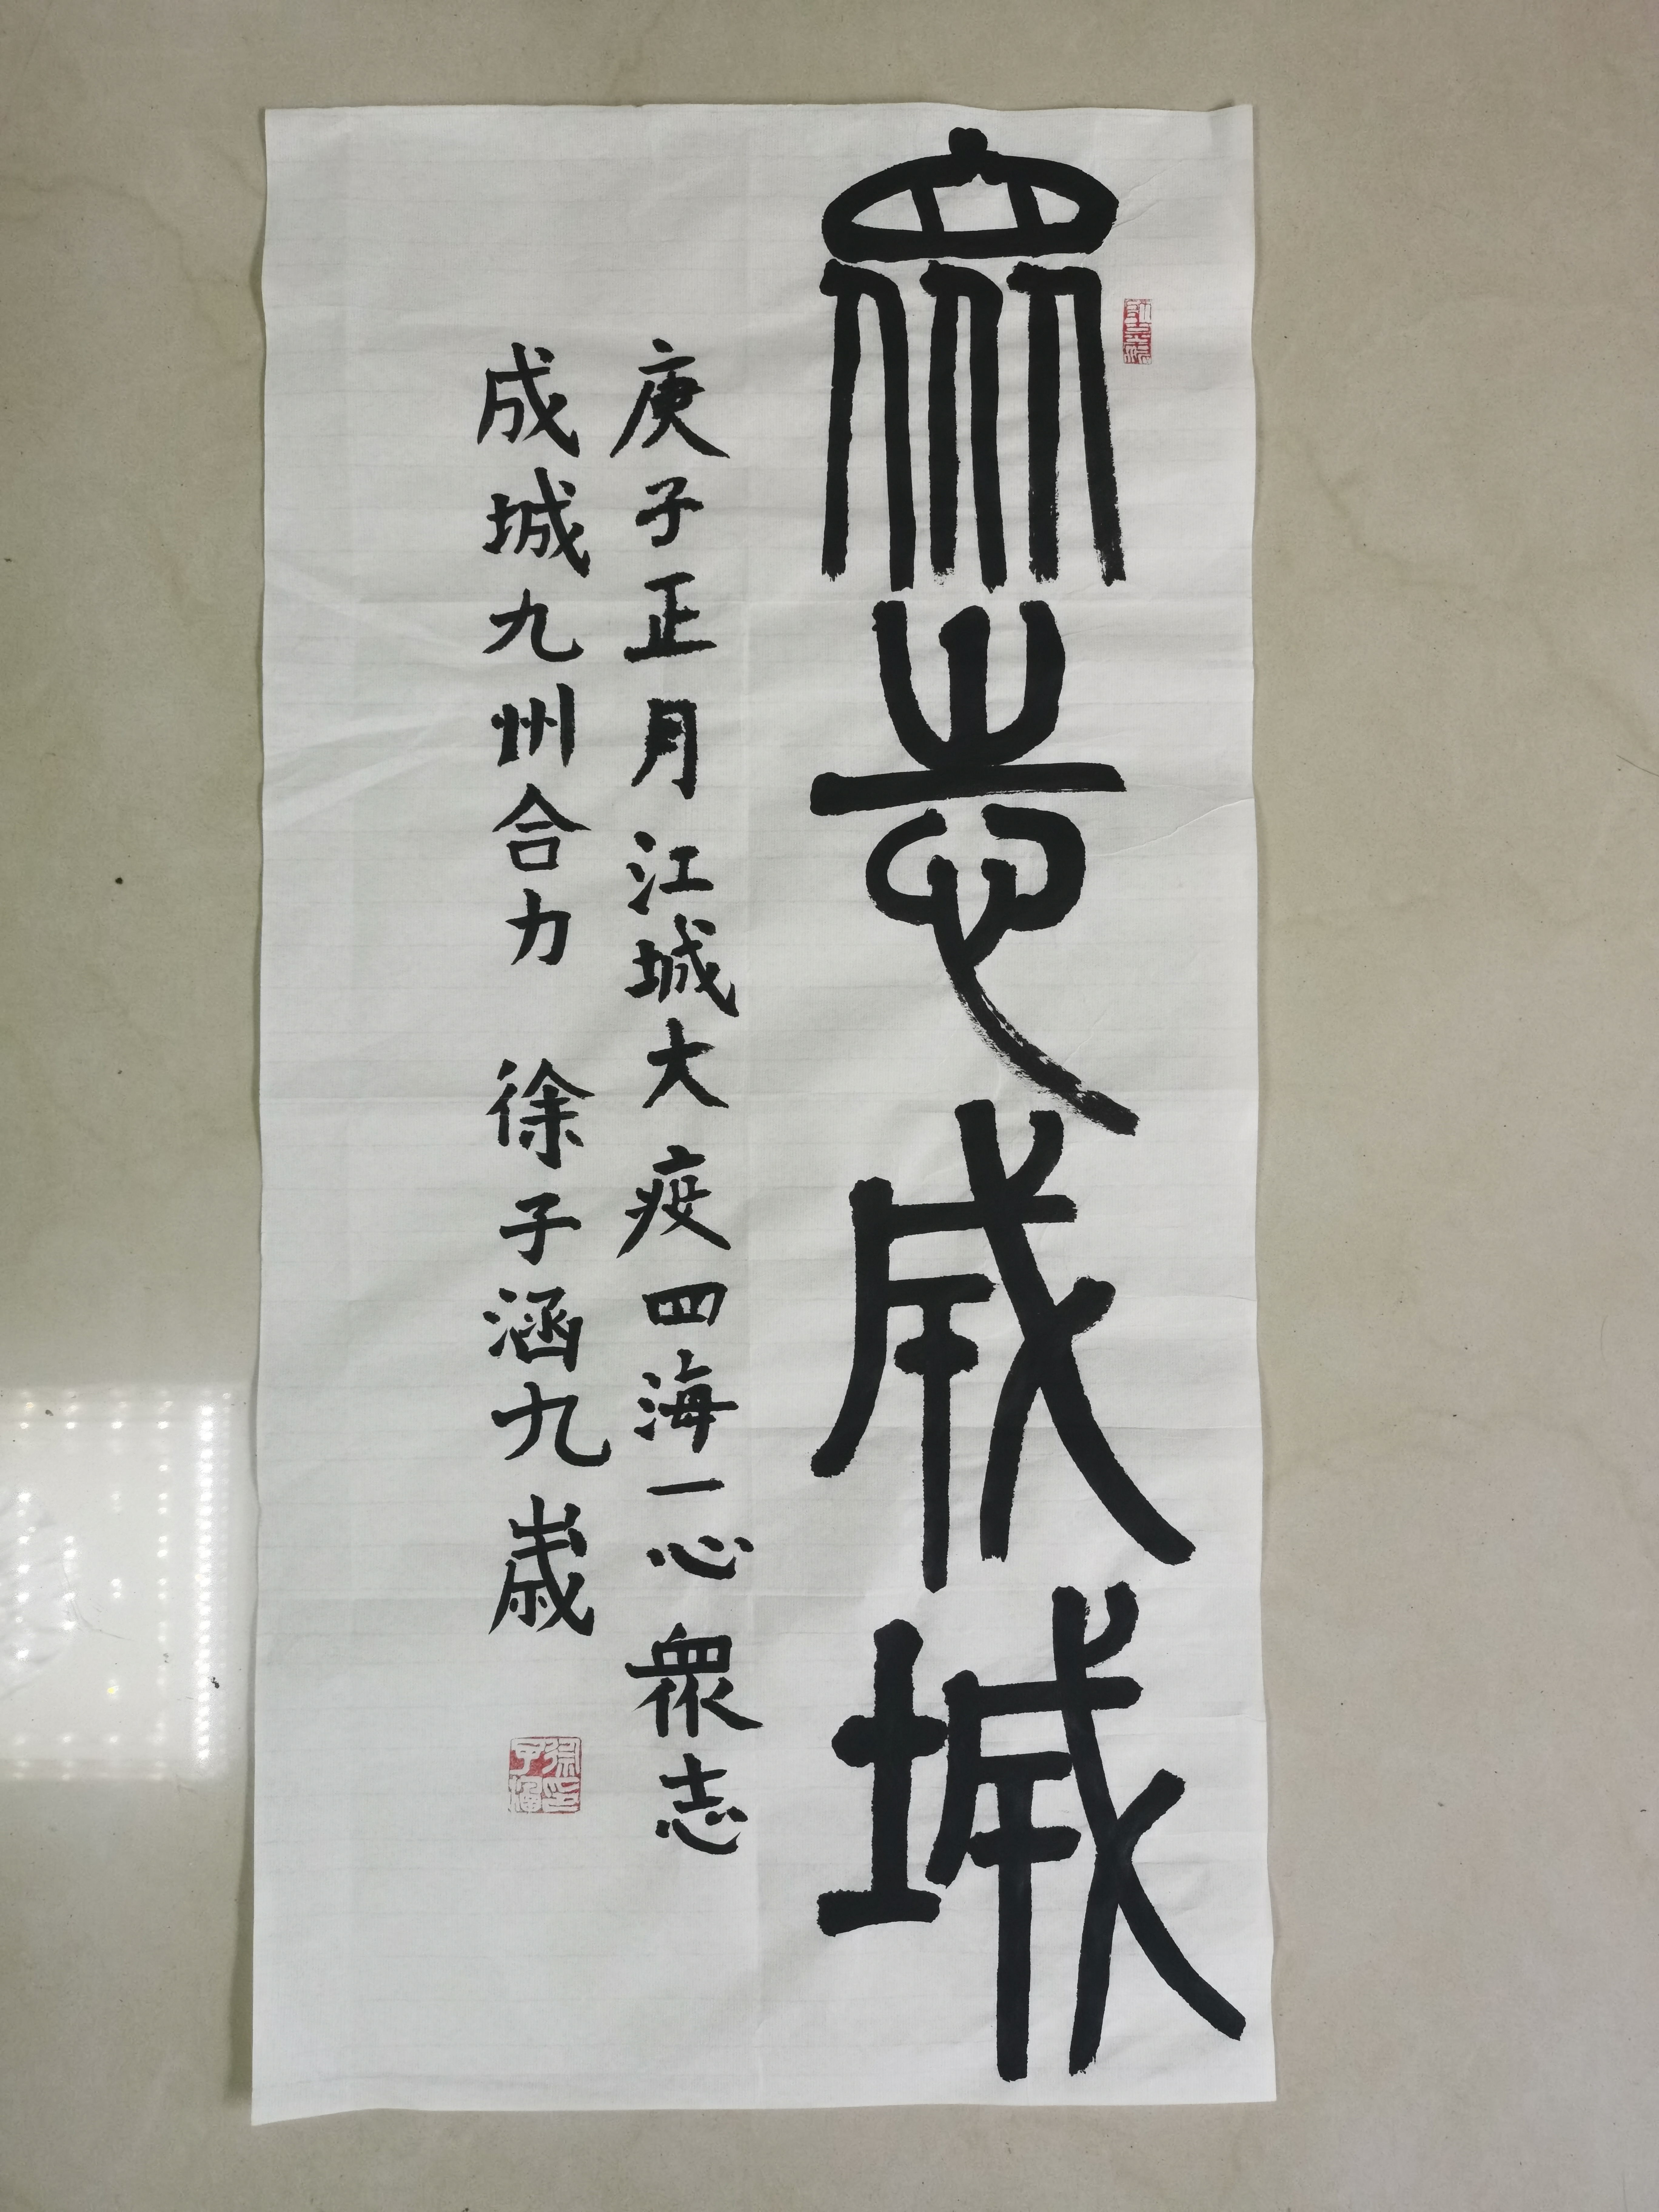 眾志成城
庚子正月江城大疫四海一心眾志
成城九州合力 徐子涵九歲